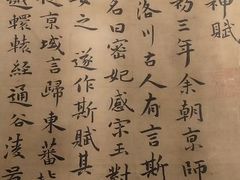 神賦
初三年余朝京師
洛川古人有言斯
名曰宓妃感宋玉對
女之 遂作斯賦其
從京域言歸東藩
轘轅經通谷陵景